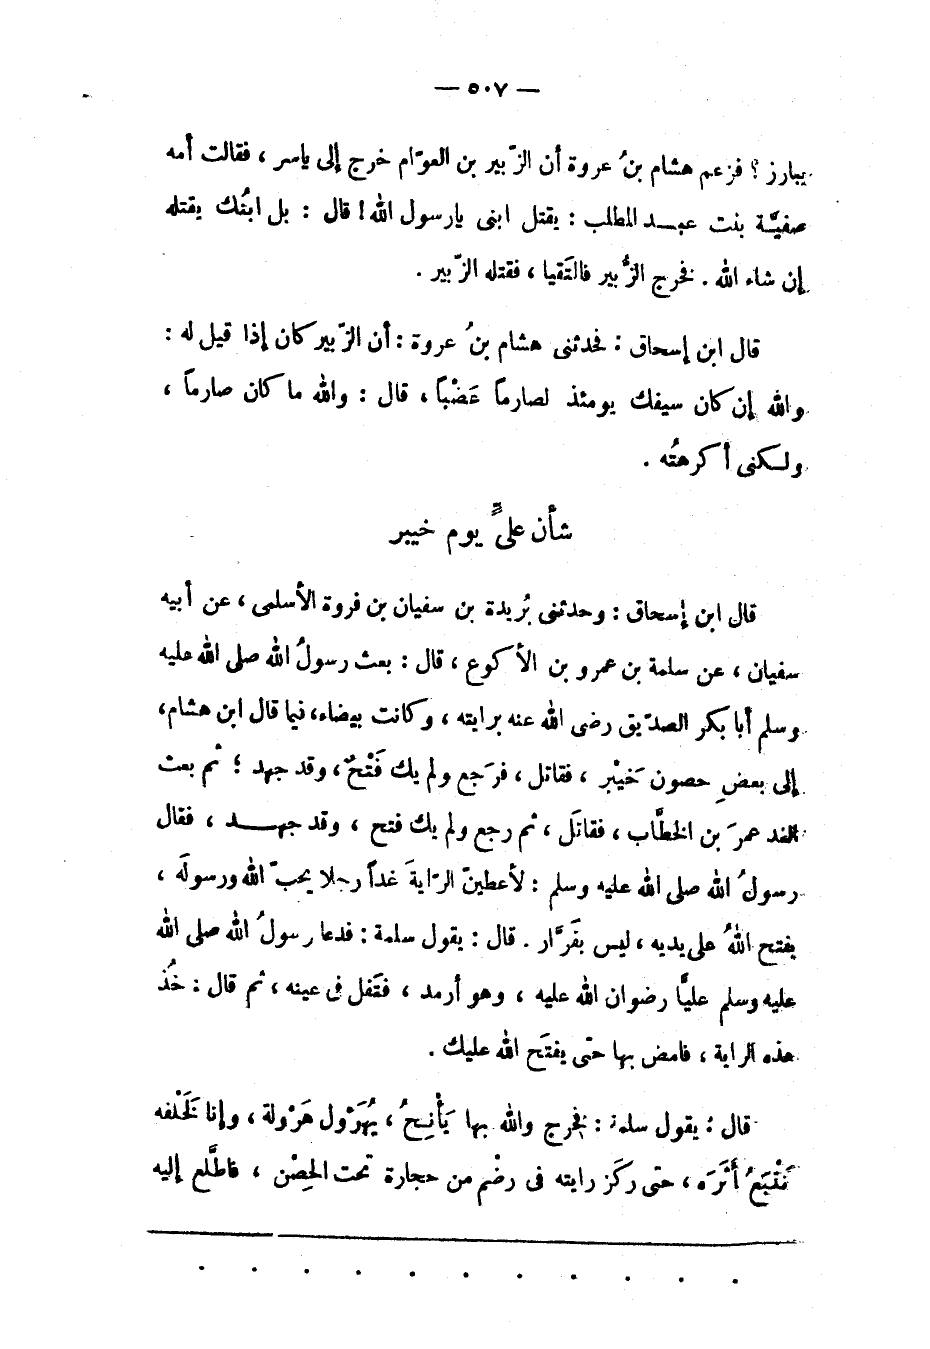 — ٥٠٧ —
يبارز ؟ فزعم هشام بنُ عروة أن الزّبير بن العوّام خرج إلى ياسر ، فقالت أمه
صفيَّة بنت عبد المطلب : يقتل ابنى يارسول الله! قال : بل ابنُك يقتله
إن شاء الله . فخرج الزُّبير فالتَقيا ، فقتله الزّبير .
قال ابن إسحاق : فحدثنى هشام بنُ عروة : أن الزّبير كان إذا قيل له :
والله إن كان سيفك يومئذ لصارماً عَضْباً ، قال : والله ما كان صارماً ،
ولكنى أكرهتُه .
شأن علىٍّ يوم خيبر
قال ابن إسحاق : وحدثنى بُريدة بن سفيان بن فروة الأسلمى ، عن أبيه
سفيان ، عن سلمة بن عمرو بن الأكوع ، قال : بعث رسولُ الله صلى الله عليه
وسلم أبا بكر الصدّيق رضى الله عنه برايته ، وكانت بيضاء، فيما قال ابن هشام،
إلى بعضِ حصون خَيْبر ، فقاتل ، فرَجع ولم يك فَتْحٌ، وقد جهد ؛ ثم بعث
الغد عمرَ بن الخطَّاب ، فقاتَل ، ثم رجع ولم يك فتح ، وقد جهد ، فقال
رسولُ الله صلى الله عليه وسلم : لأعطينّ الرّايةَ غداً رجلا يحبّ الله ورسولَه ،
يفتح اللهُ على يديه ، ليس بفَرَّار . قال : يقول سلمة : فدعا رسولُ الله صلى الله
عليه وسلم عليًّا رضوان الله عليه ، وهو أرمد ، فتَفل فى عينه ، ثم قال : خُذ
هذه الراية ، فامض بها حتّى يفتَح الله عليك .
قال : يقول سلمة : فخرج والله بها يَأْنِحُ ، يُهَرْول هَرْولة ، وإنا لخَلْفه
نَتْبَعُ أثَرَه ، حتى ركَز رايته فى رضْم من حجارة تحت الحِصْن ، فاطَّلع إليه